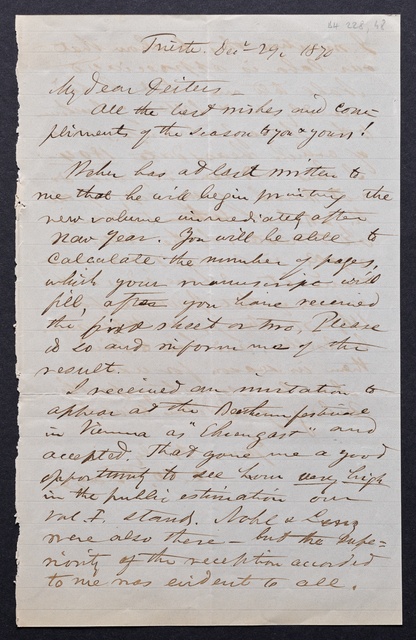 Trieste. Dec. 29. 1870
My dear Deiters –
All the best wishes and com-
pliments of the season to you & yours!
Weber has at last written to
me that he will begin printing the
new volume immediately after
New Year. You will be able to
calculate the number of pages,
which your manuscript will
fill, after you have received
the first sheet or two. Please
do so and inform me of the
result.
I received an invitation to
appear at the
in Vienna as "Ehrengast" and
accepted. That gave me a good
opportunity to see how very high
in the public estimation our
vol I. stands. Nohl &
were also there – but the supe-
riority of the reception accorded
to me was evident to all.